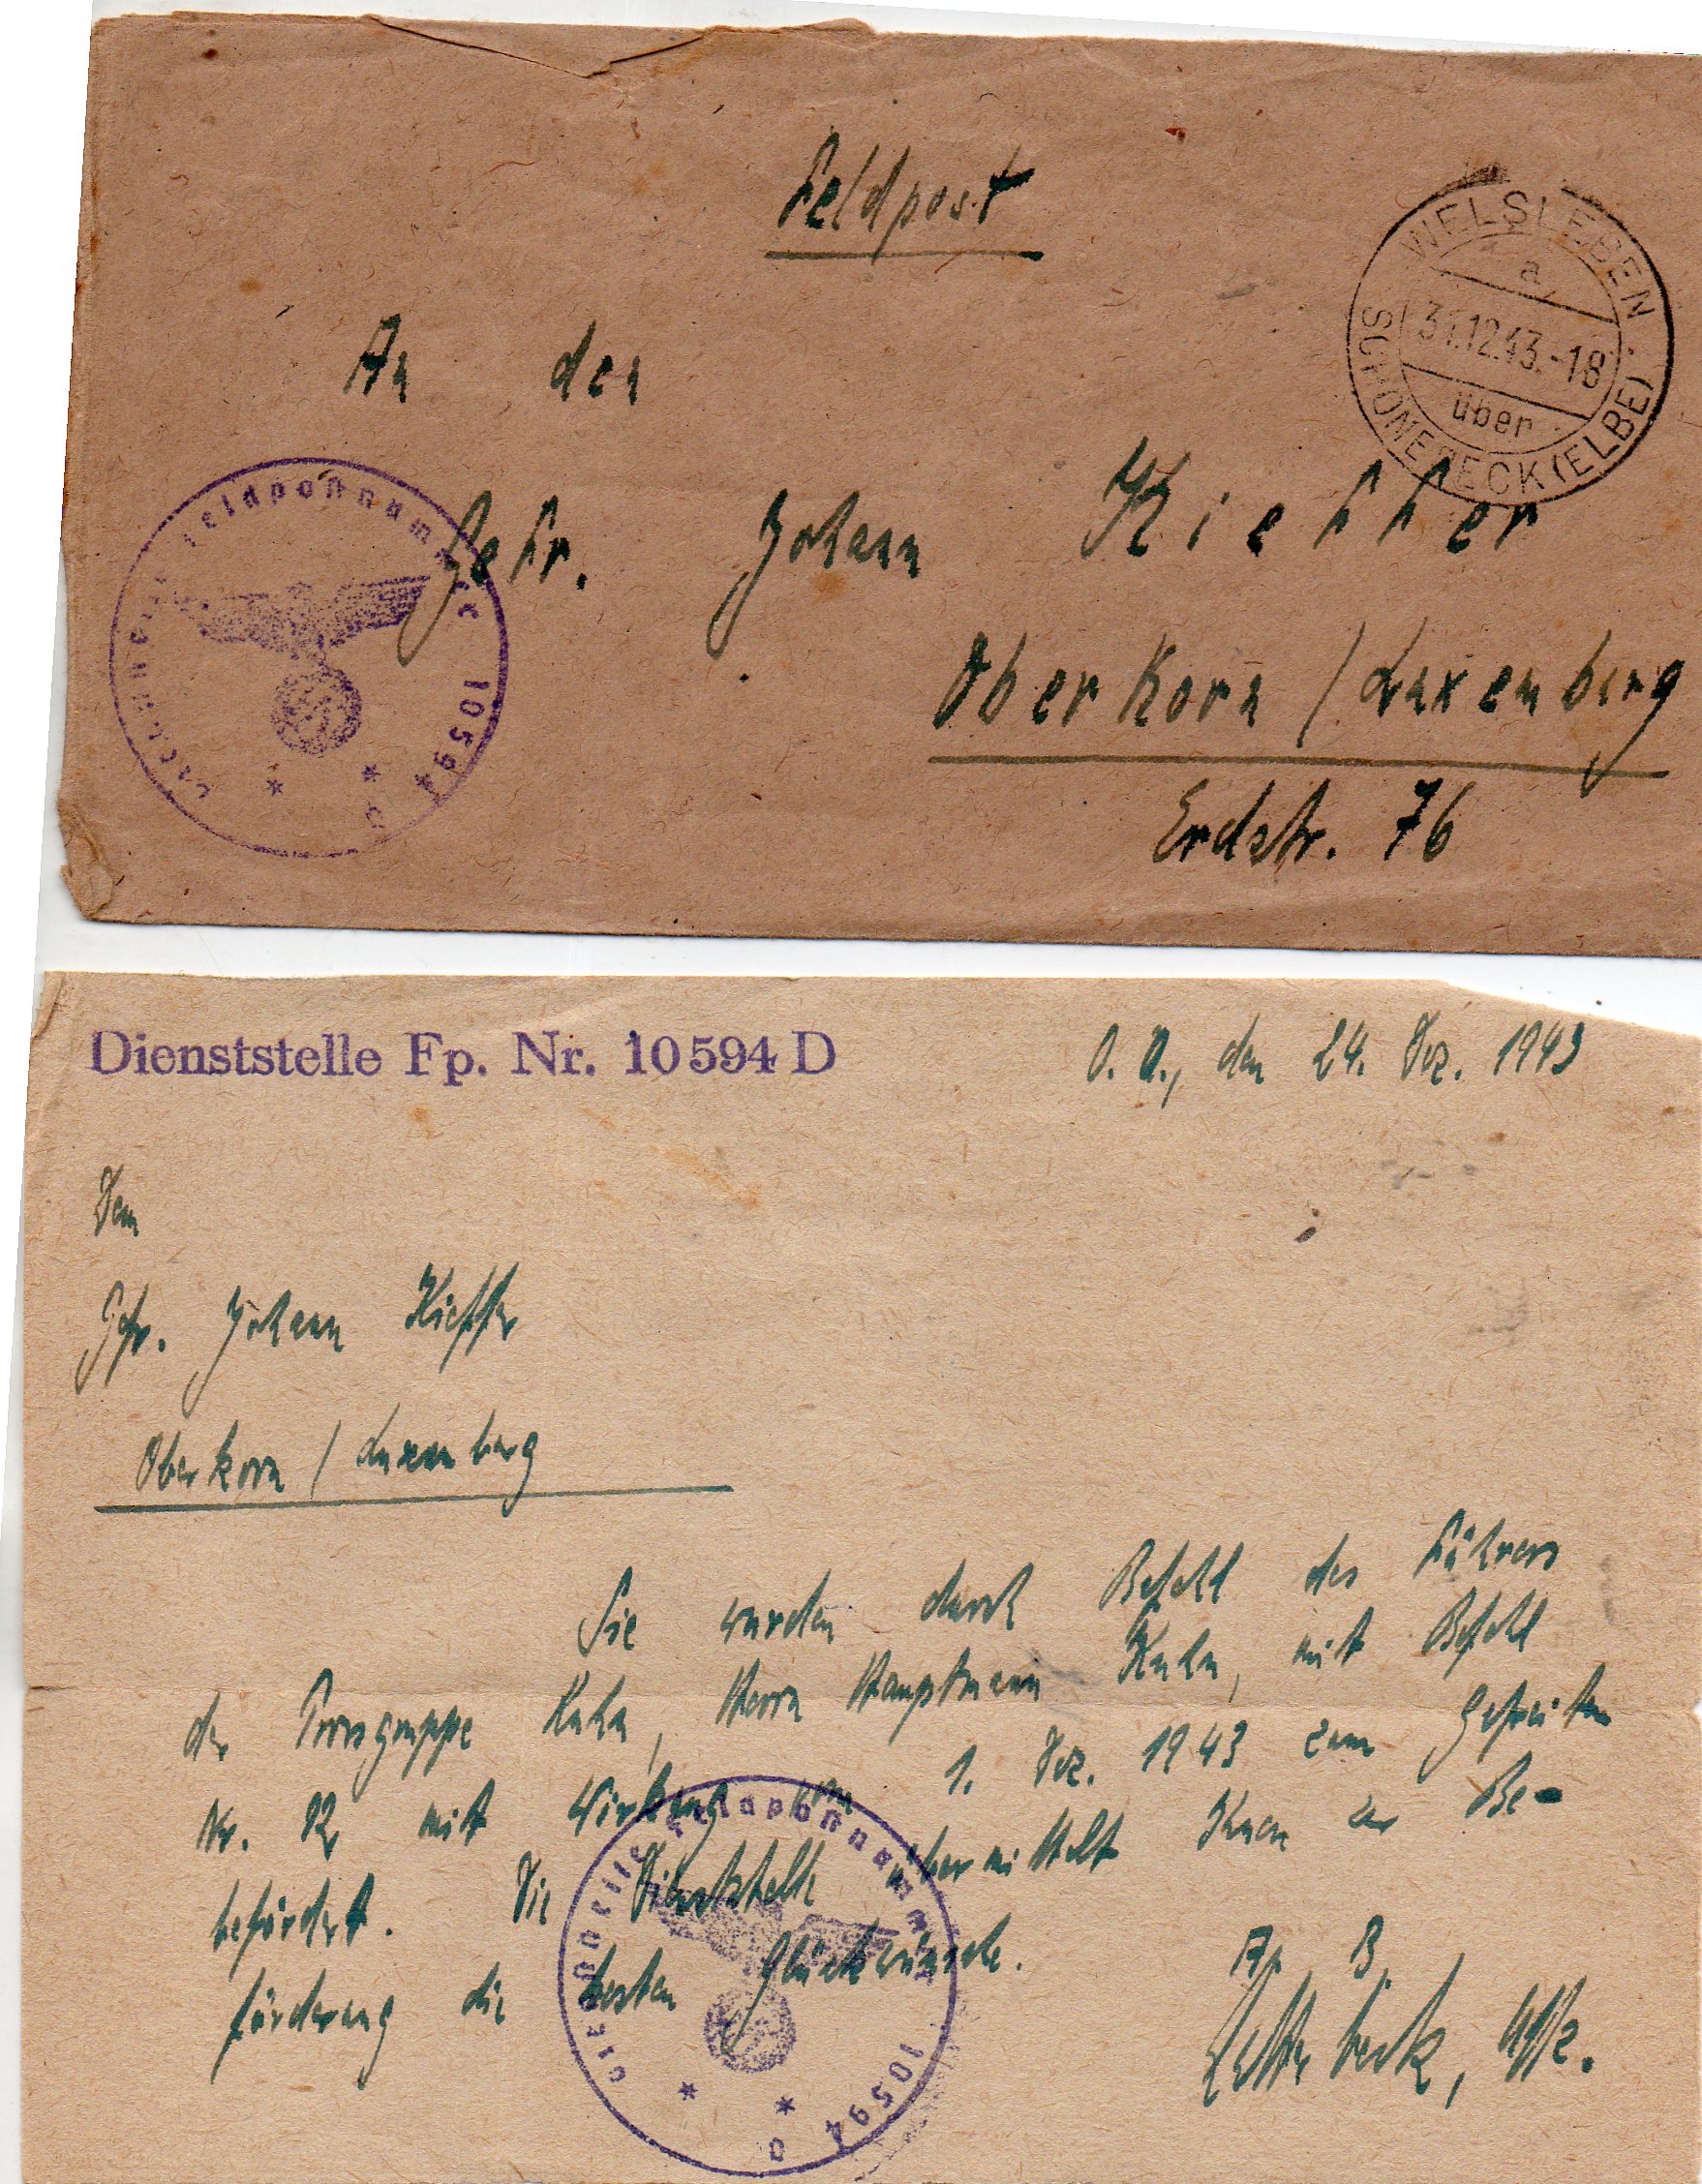 Feldpost
WELSLEBEN
a
31.12.43.-18
über
SCHÖNEBECK (ELBE)
An den
Gefr. Johann Kieffer
Oberkorn / Luxemburg
Erdstr. 76
Dienststelle Feldpostnummer 10594 D
Dienststelle Fp. Nr. 10594 D
O. U., den 24. Dez. 1943
Dem
Gefr. Johann Kieffer
Oberkorn / Luxemburg
Sie wurden durch Befehl des Führers
der Transgruppe Kuhn, Herrn Hauptmann Kuhn, mit Befehl
Nr. 12 mit Wirkung vom 1. Dez. 1943 zum Gefreiten
befördert. Die Dienststelle übermittelt Ihnen zur Be-
förderung die besten Glückwünsche.
Uffz.
Dienststelle Feldpostnummer 10594 D